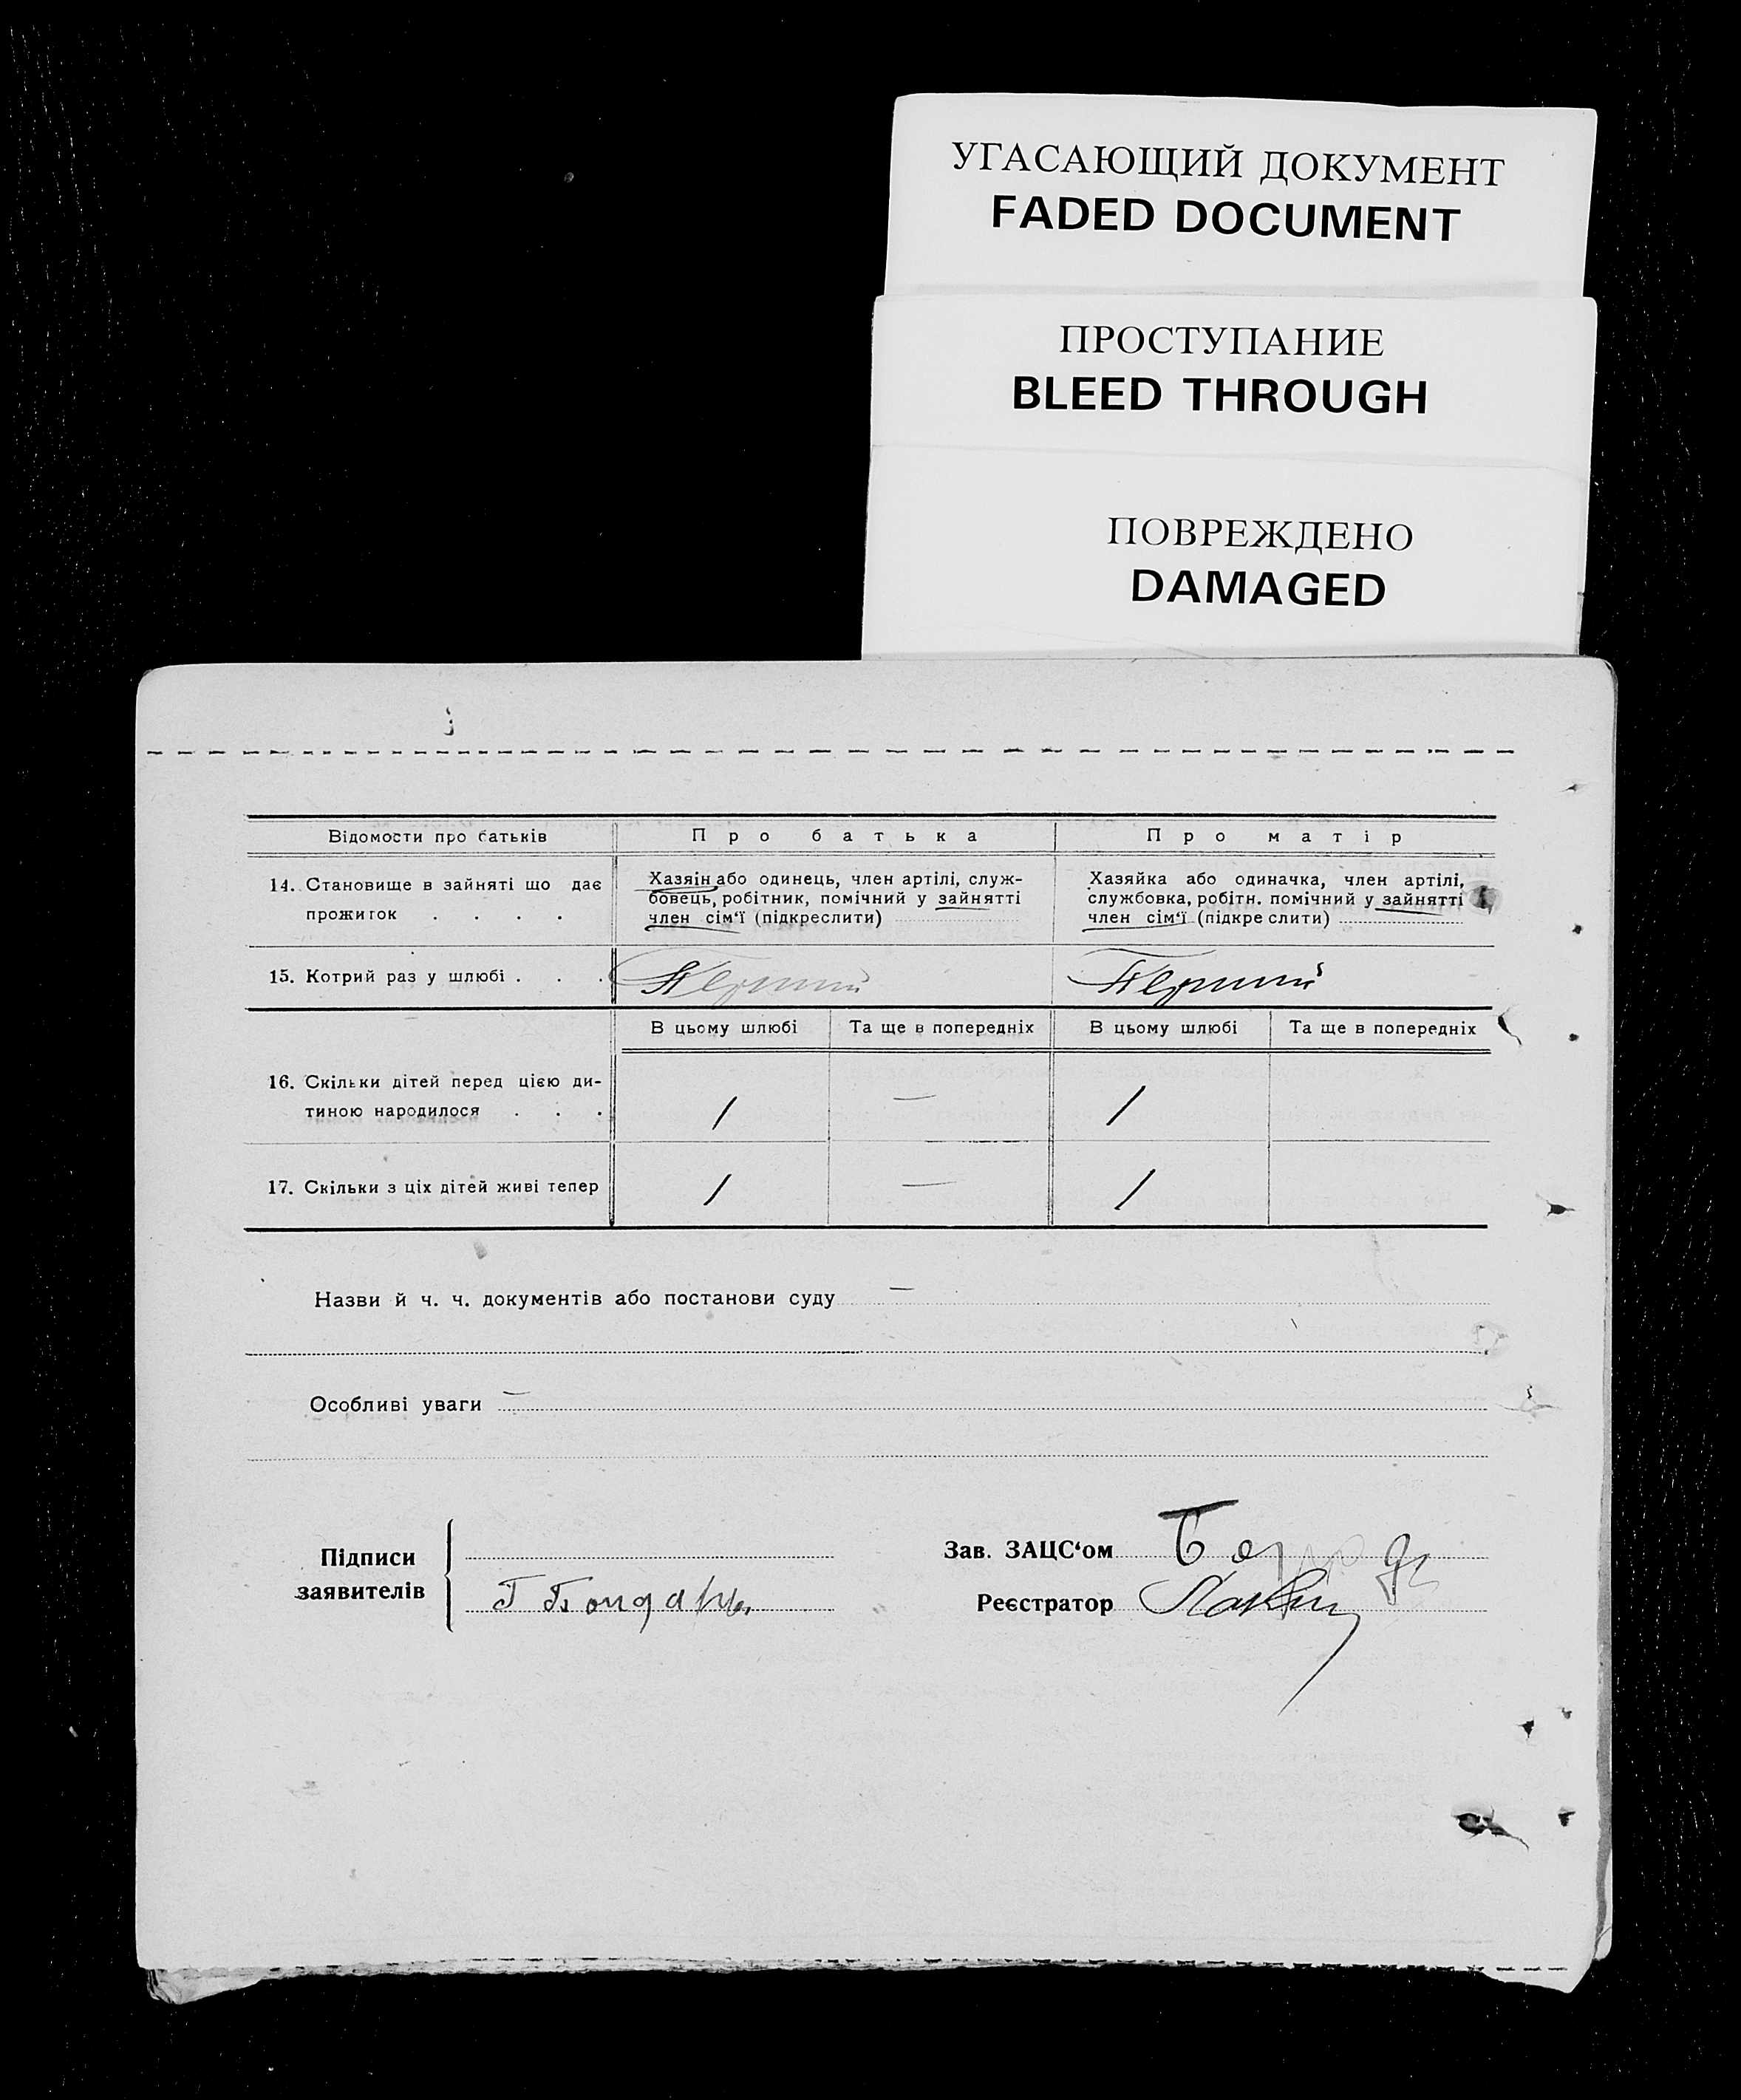 УГАСАЮЩИЙ ДОКУМЕНТ
FADED DOCUMENT
ПРОСТУПАНИЕ
BLEED THROUGH
ПОВРЕЖДЕНО
DAMAGED
Відомости про батьків
Про батька
Про матір
14. Становище в зайняті що дає
прожиток . . . .
Хазяін або одинець, член артілі, служ-
бовець, робітник, помічний у зайнятті
член сім‘ї (підкреслити)
Хазяйка або одиначка, член артілі,
службовка, робітн. помічний у зайнятті
член сім‘ї (підкреслити)
15. Котрий раз у шлюбі . . .
Перший
Перший
В цьому шлюбі
Та ще в попередніх
В цьому шлюбі
Та ще в попередніх
16. Скільки дітей перед цією ди-
тиною народилося . . .
1 — 1
17. Скільки з ціх дітей живі тепер
1 — 1
Назви й ч. ч. документів або постанови суду —
Особливі уваги —
Підписи
заявителів
Г Бондар
Зав. ЗАЦС‘ом
Реєстратор